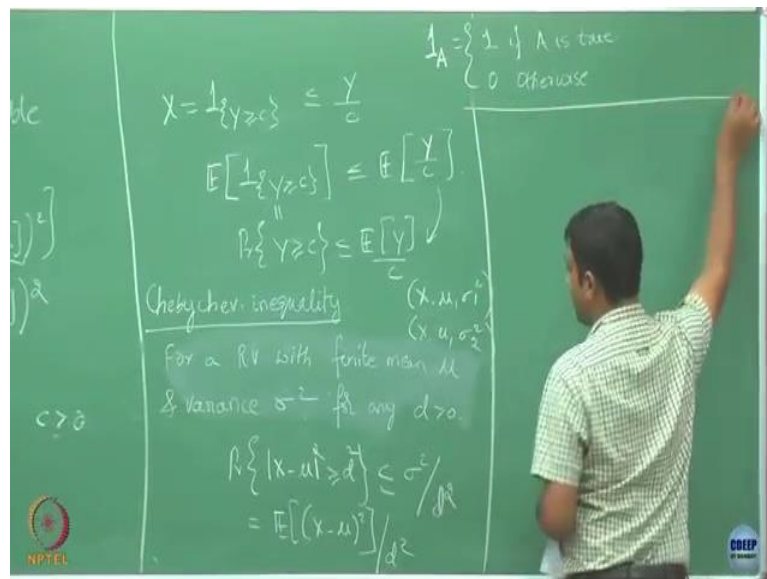 ble
])²]
])²
c > 0
X = 1{Y≥c} ≤ Y/c
E[1{Y≥c}] ≤ E[Y/c].
=
Pr{Y≥c} ≤ E[Y]/c
Chebychev. inequality
(X, μ, σ₁²)
(X μ, σ₂²)
For a RV with finite mean μ
& variance σ² for any d>0.
Pr{|X-μ|² ≥ d²} ≤ σ²/d²
= E[(X-μ)²]/d²
1_A = { 1 if A is true
0 otherwise
NPTEL
CDEEP
IIT BOMBAY